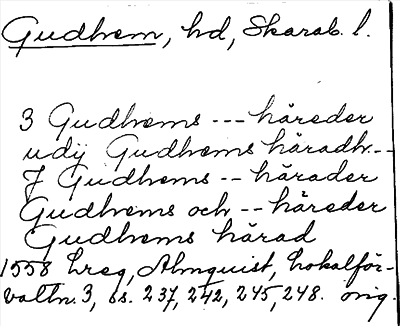 Gudhem, hd, Skarab. l.
3 Gudhems --- häreder
udij Gudhems häradh--
J Gudhems -- härader
Gudhems och -- häreder
Gudhems härad
1558 Lreg, Almquist, Lokalför-
valtn. 3, ss. 237, 242, 245, 248. orig.